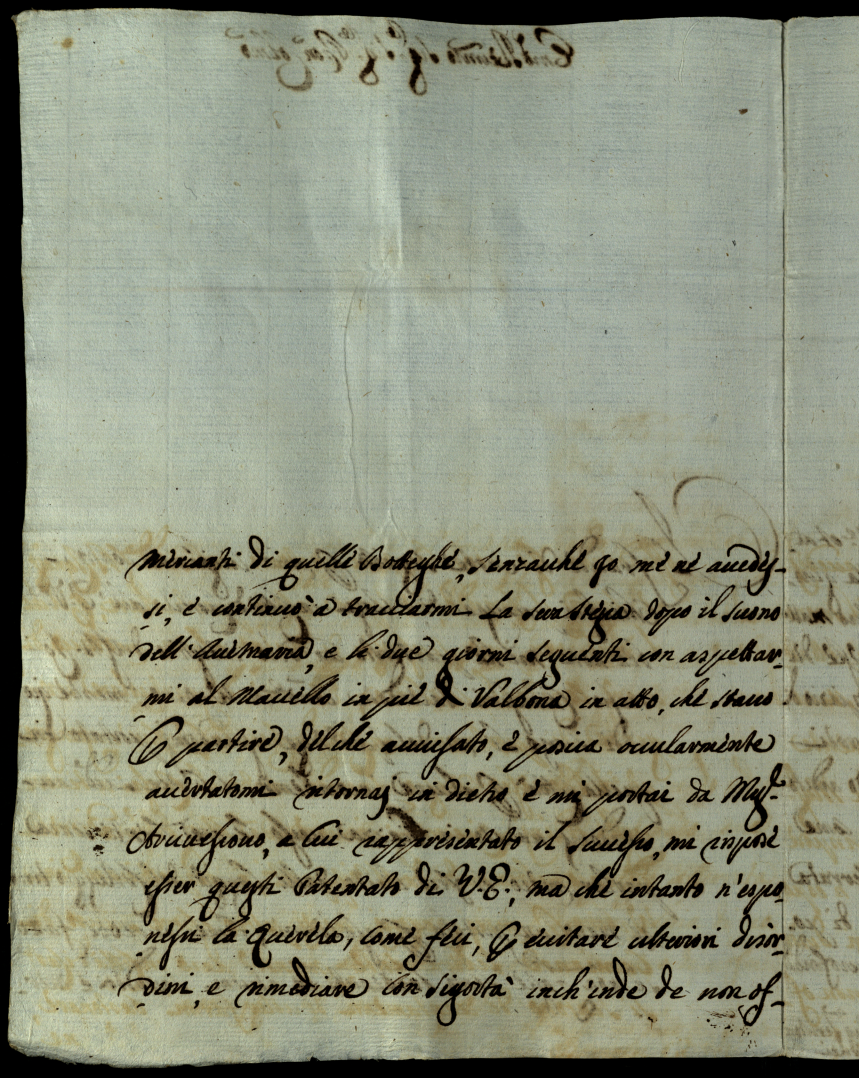 mercanti di quelle Botteghe, senzache io me ne avedes-
si, e continuò a tracciarmi la sera stessa dopo il suono
dell'Avemaria, e le due giorni seguenti con aspettar-
mi al Macello in piè di Valbona in atto, che stavo
partire, del che avvisato, e poscia ocularmente
avertatomi intornaj in dietro e mi portai da Mgr.
Arcivescovo, a cui rappresentato il successo, mi rispose
esser questi Patentato di V.E., ma che intanto n'espo-
nessi la Querela, come feci, evitare ulteriori disor-
dini, e rimediare con sigortà inch'inde de non of-